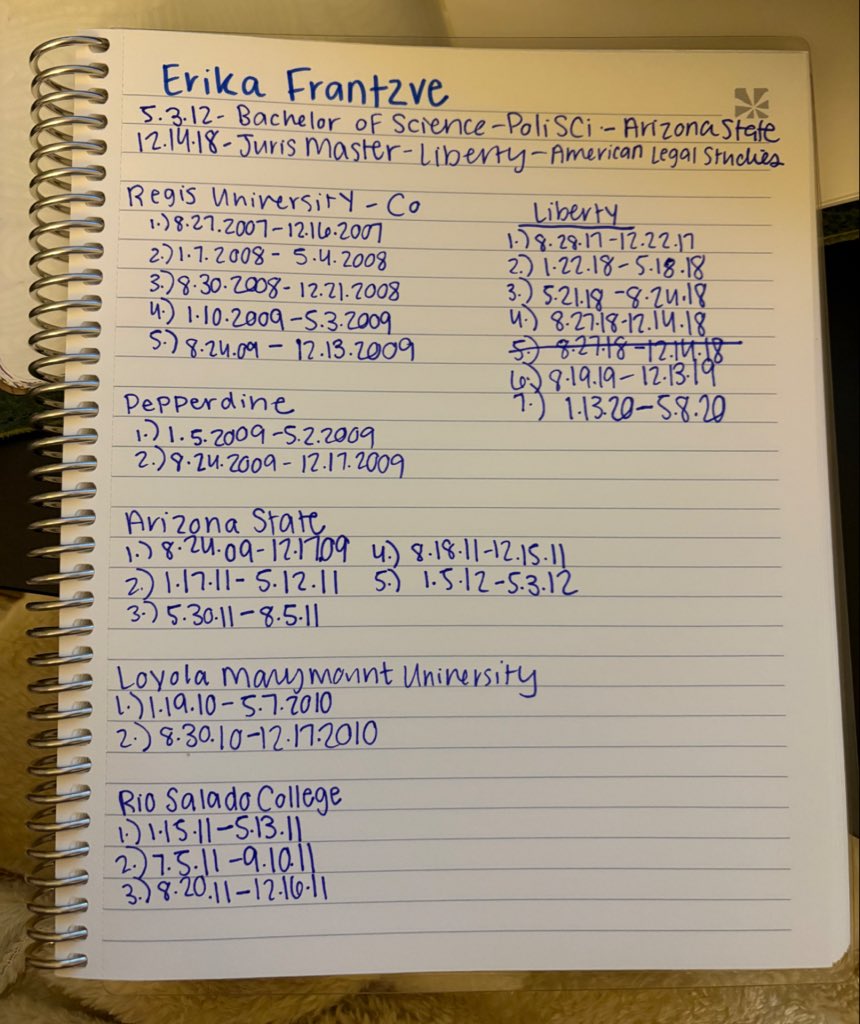 Erika Frantzve
5.3.12- Bachelor of Science-PoliSCi - Arizona State
12.14.18- Juris Master-Liberty-American Legal Studies
Regis University - Co
1.) 8.27.2007-12.16.2007
2.) 1.7.2008 - 5.4.2008
3.) 8.30.2008- 12.21.2008
4.) 1.10.2009 -5.3.2009
5.) 8.24.09 - 12.13.2009
Liberty
1.) 8.28.17-12.22.17
2.) 1.22.18-5.18.18
3.) 5.21.18 -8.24.18
4.) 8.27.18-12.14.18
5.) 8.27.18 -12.14.18
6.) 8.19.19- 12.13.19
7.) 1.13.20-5.8.20
Pepperdine
1.) 1.5.2009-5.2.2009
2.) 8.24.2009- 12.17.2009
Arizona State
1.) 8.24.09-12.1709 4.) 8.18.11-12.15.11
2.) 1.17.11- 5.12.11 5.) 1.5.12-5.3.12
3.) 5.30.11-8.5.11
Loyola Marymount University
1.) 1.19.10 - 5.7.2010
2.) 8.30.10-12.17.2010
Rio Salado College
1.) 1.15.11-5.13.11
2.) 7.5.11 -9.10.11
3.) 8.20.11-12.16.11